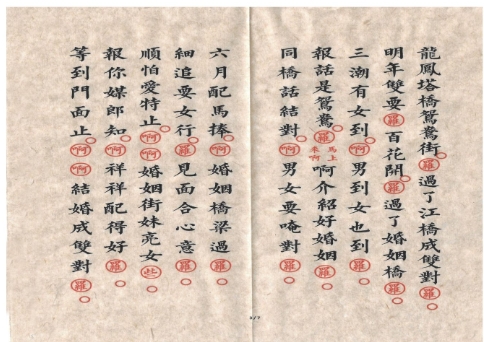 龍鳳塔橋鴛鴦街羅過了江橋成雙對羅
明年雙要羅百花開羅過了婚姻橋
三潮有女到啊男到女也到羅
報話是鴛鴦羅馬上來啊啊介紹好婚姻
同橋話結對啊男女要唵對羅
六月配馬捧啊婚姻橋梁過羅
細追要女行羅見面合心意羅
順怕愛特止啊啊婚姻街妹亮女些
報你媒郎知啊祥祥配得好羅
等到門面止啊啊結婚成雙對羅